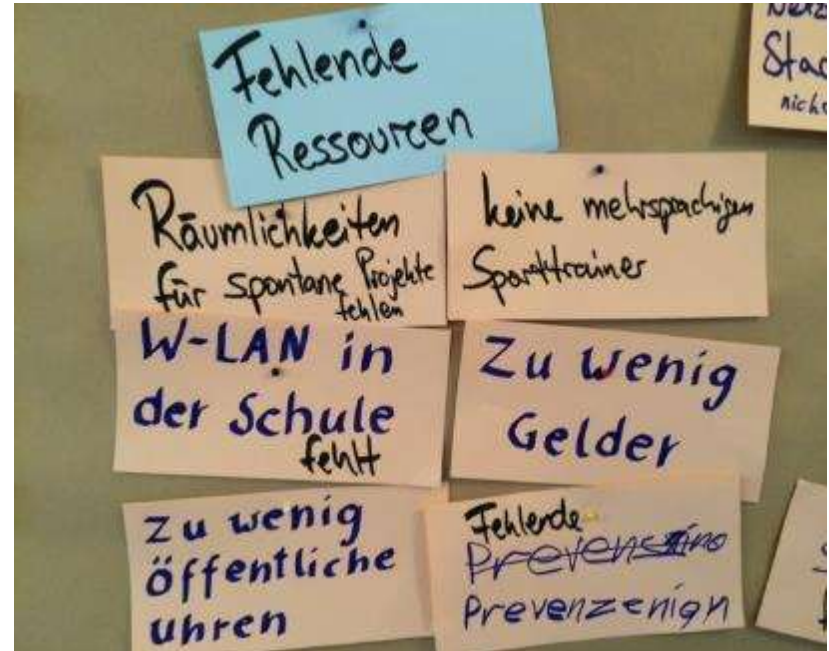 Fehlende
Ressourcen
Räumlichkeiten
für spontane Projekte
fehlen
keine mehrsprachigen
Sporttrainer
W-LAN in
der Schule
fehlt
Zu wenig
Gelder
zu wenig
öffentliche
uhren
Fehlende
Prevenzenign
nich